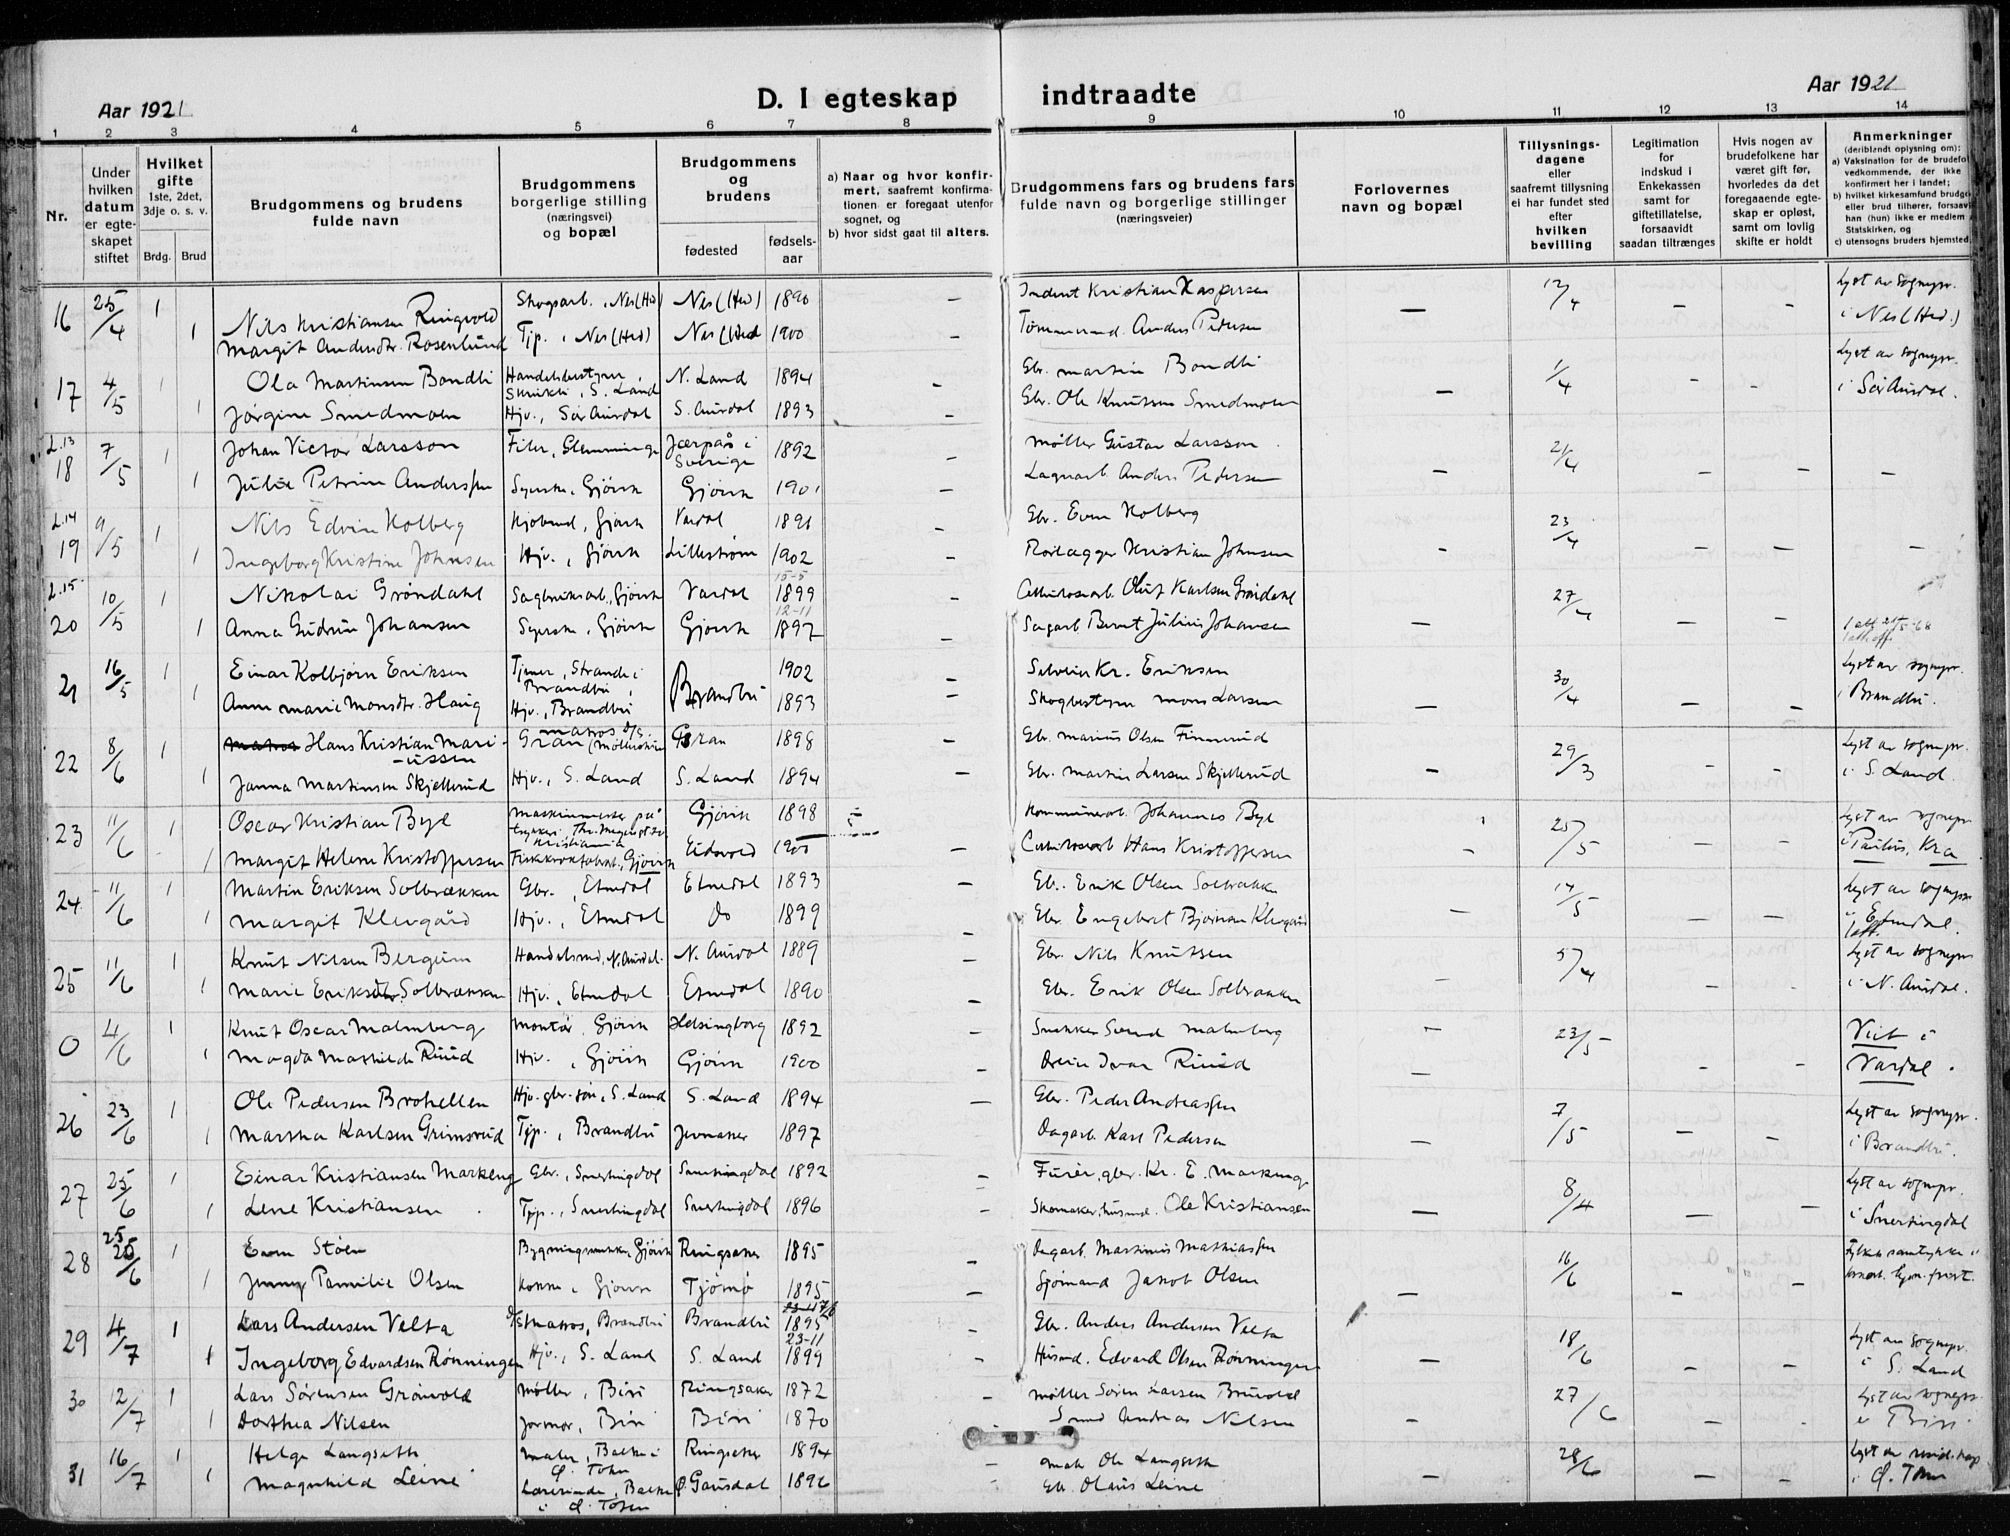 Aar 1921
D. I egteskap indtraadte
Aar 1921
1 2 3 4 5 6 7 8 9 10 11 12 13 14
Nr.
Under hvilken datum er egte- skapet stiftet
Hvilket gifte 1ste, 2det, 3dje o. s. v.
Brdg. Brud
Brudgommens og brudens fulde navn
Brudgommens borgerlige stilling (næringsvei) og bopæl
Brudgommens og brudens
fødested
fødsels- aar
a) Naar og hvor konfir- mert, saafremt konfirma- tionen er foregaat utenfor sognet, og
b) hvor sidst gaat til alters.
Brudgommens fars og brudens fars fulde navn og borgerlige stillinger (næringsveier)
Forlovernes navn og bopæl
Tillysnings- dagene eller saafremt tillysning ei har fundet sted efter hvilken bevilling
Legitimation for indskud i Enkekassen samt for giftetillatelse, forsaavidt saadan tiltrænges
Hvis nogen av brudefolkene har været gift før, hvorledes da det foregaaende egte- skap er opløst, samt om lovlig skifte er holdt
Anmerkninger
(deriblandt oplysning om):
a) Vaksination for de brudefol vedkommende, der ikke konfirmert her i landet;
b) hvilket kirkesamfund brudgo eller brud tilhører, forsaavi han (hun) ikke er medlem Statskirken, og
c) utensogns bruders hjemsted
16 25/4 1 Nils Kristiansen Ringvold Skogsarb., Nes (Hed) Nes (Hed) 1890 – Inderst Kristian Kaspersen – 12/4 – – Lyst av sognepr.
1 Margit Andersdtr. Rosenlund Tjp., Nes (Hed) Nes (Hed 1900 – Tømmermand Anders Pedersen i Nes (Hed.)
17 4/5 1 Ola Martinsen Bondli Handelsbestyrer, Skrukli, S. Land N. Land 1894 – Gbr. Martin Bondli 1/4 – – Lyst av sognepr.
1 Jørgine Smedmoen Hjv., Sør Aurdal S. Aurdal 1893 – Gbr. Ole Knutsen Smedmoen – i Sør Aurdal.
L.13 18 7/5 1 Johan Victor Larsson Filer, Glemminge Jærpås i Sverige 1892 Møller Gustav Larsson 21/4
1 Julie Petrine Anderssen Syerske, Gjøvik Gjøvik 1901 – Lagerarb. Anders Pedersen – – – –
L.14 19 9/5 1 Nils Edvin Kolberg Kjøbmd, Gjøvik Vardal 1891 – Gbr. Even Kolberg 23/4
1 Ingeborg Kristine Johnsen Hjv., Gjøvik Lillestrøm 1902 – Rørlægger Kristian Johnsen – – – –
L.15 20 10/5 1 Nikolai Grøndahl Sagbruksarb., Gjøvik Vardal 15-5 1899 – Cellulosearb. Oluf Karlsen Grøndahl 27/4
1 Anna Gudrun Johansen Syerske, Gjøvik Gjøvik 12-11 1897 – Sagarb. Bernt Julius Johansen – – –
21 16/5 1 Einar Kolbjørn Eriksen Tjener, Strande i Brandbu, Brandbu 1902 – Kr. Eriksen 30/4 Lyst av sognepr.
1 Anne Marie Monsdtr. Haug Hjv., Brandbu 1893 – Skogbestyrer Mons Larsen – – – i Brandbu.
22 8/6 1 Hans Kristian Mari- -ussen matros Gran Gran 1898 Gbr. Marius Olsen Finnerud 29/3 Lyst av sognepr.
1 Janna Martinsen Skjellerud Hjv., S. Land S. Land 1894 – Gbr. Martin Larsen Skjellerud – – – i S. Land.
23 11/6 1 Oscar Kristian Bye Maskinmester på Kristiania Gjøvik 1898 Kommunearb. Johannes Bye 25/5 Lyst av sognepr
1 Margit Helene Kristoffersen Gjøvik Eidsvold 1900 – Cellulosearb. Hans Kristoffersen – – – i Paulus, Kra
24 11/6 1 Martin Eriksen Solbrækken Gbr., Etnedal Etnedal 1893 – Gbr. Erik Olsen Solbrække 14/5 Lyst av sognepr
1 Margit Klevgård Hjv., Etnedal do 1899 – Gbr. Engebret Bjørnsen Klevgård – – – i Etnedal.
25 11/6 1 Knut Nilsen Bergum Handelsmd, N. Aurdal. N. Aurdal 1889 – Gbr. Nils Knutsen 5/4 Lyst av sognepr
1 Marie Eriksdtr. Solbrækken Hjv., Etnedal Etnedal 1890 – Gbr. Erik Olsen Solbrækken – – – i N. Aurdal.
0 4/6 1 Knut Oscar Malmberg Montør, Gjøvik Helsingborg 1892 Snekker Svend Malmberg – 23/5 Viet i
1 Magda Mathilde Ruud Hjv., Gjøvik Gjøvik 1900 – Ivar Ruud – – – Vardal.
26 23/6 1 Ole Pedersen Brohellen Hjv. gbr. søn, S. Land S. Land 1894 Gbr. Peder Andreassen 7/5 Lyst av sognepr.
1 Martha Karlsen Grimsrud Tjp., Brandbu Jevnaker 1897 – Dagarb. Karl Pedersen – – – i Brandbu.
27 25/6 1 Einar Kristiansen Markeng Gbr., Snertingdal Snertingdal 1892 – Furér, gbr. Kr. E. Markeng 8/4 Lyst av sognepr.
1 Lene Kristiansen Tjp., Snertingdal Snertingdal 1896 – Skomaker, husmd. Ole Kristiansen – – – i Snertingdal
28 25/6 1 Even Støen Bygningssnekker Gjøvik Ringsaker 1895 – Dagarb. Martinius Mathiassen 16/6
1 Jenny Pamilie Olsen Kokke, Gjøvik Tjømø 1895 – Sjømand Jakob Olsen – – –
29 4/7 1 Lars Andersen Velta Matros, Brandbu Brandbu 1895 – Gbr. Anders Andersen Velta 18/6 Lyst av sognepr.
1 Ingeborg Edvardsen Rønningen Hjv., S. Land S. Land 23-11 1899 – Husmd. Edvard Olsen Rønningen – – – i S. Land
30 12/7 1 Lars Sørensen Grønvold Møller, Biri Ringsaker 1872 – Møller Søren Larsen 27/6 Lyst av sognepr.
1 Dorthea Nilsen Jormor, Biri Biri 1870 Smed Andreas Nilsen – – – i Biri
31 16/7 1 Helge Langseth Maler, Balke i Ø. Toten Ringsaker 1894 – Ole Langseth 28/6 Lyst av resid. kap
1 Magnhild Leine Lærerinde, Balke i Ø. Toten Ø. Gausdal 1892 – Gbr. Olaus Leine – – – i Ø. Toten